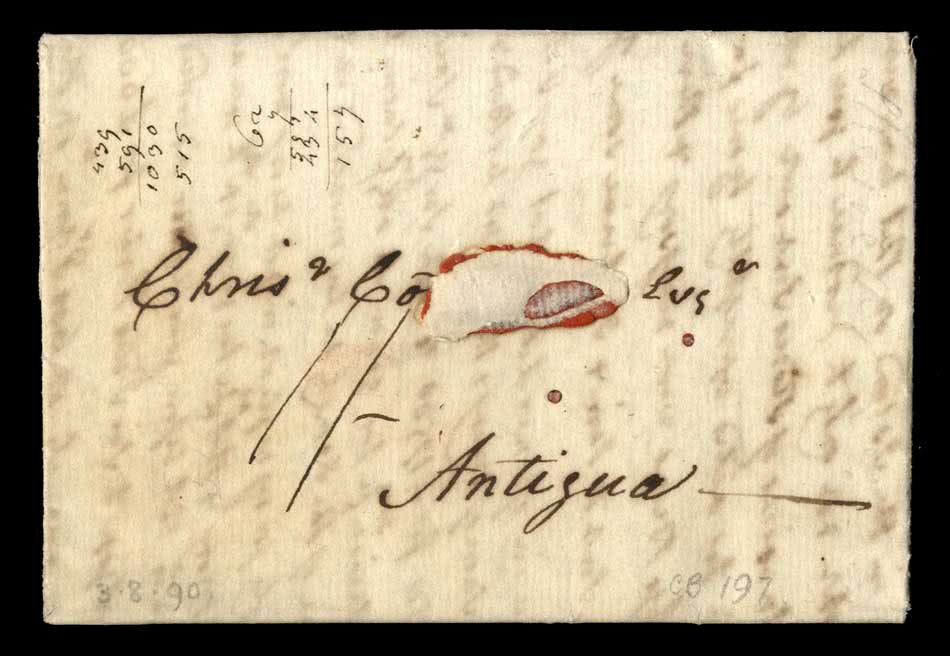 439
591
1030
515
234
157
Chrisʳ Co Esqʳ
Antigua
3.8.90
CB 197